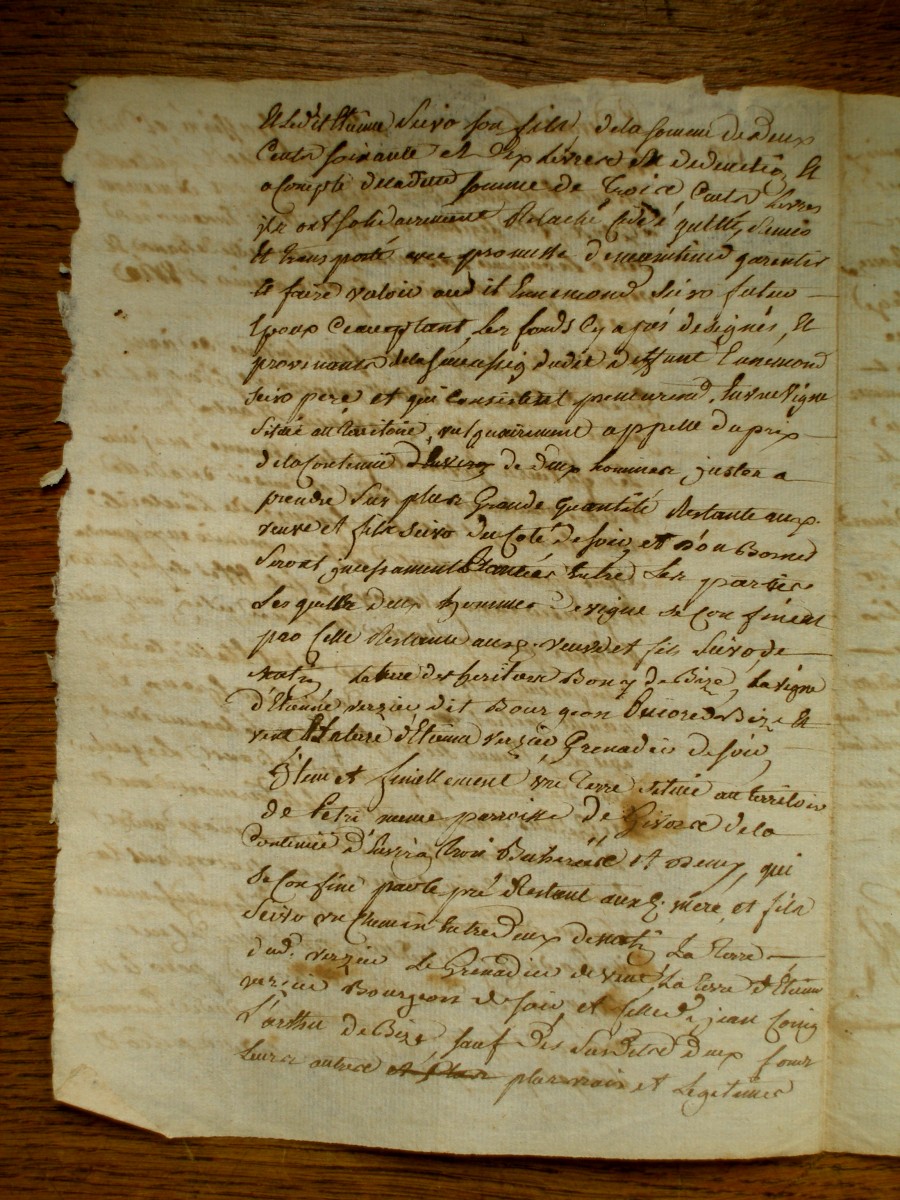 Et Ledit Etienne Seivo son fils de la somme de deux
Cents soixante et dix Livres En deduction Et
a Compte de ladite somme de trois Cents Livres
ils ont solidairement Relaché Cedé quitté, Remis
Et transporté avec promesse de maintenir garentir
Et faire valoir aud it Ennemond Seivo futur
Epoux Cy acceptant, Les fonds Cy apres designés, Et
provenants de la succession dudit deffunt Ennemond
Seivo pere et qui Consistent premierem.t En une Vigne
Située au territoire, vulguairement appellé du prix
de la Contenue d'Environ de deux hommes justes a
prendre Sur plus Grande quantité Restante aux
veuve et fils Seivo du Coté de soir, et d'ou Bornes
Seront incessament plantées Entre Les parties
Lesquelles deux hommes de vigne se Confinent
par Celle Restante aux veuve et fils Seivo, de
matin La terre des heritiers Bony de Bize, La vigne
d'Etienne verzieu dit Bourgeon Encore de Bize Et
vent Et La terre d'Etienne verzieu Grenadier de soir,
Et finellement une Terre située au territoire
de meme parroisse de Givors de la
Contenue d'Environ trois Bicherées et demy, qui
Se Confine par le pré Restant aux mere, et fils
Seivo un Chemin Entre deux de matin La Terre
dud. verzieu Le Grenadier de vent, La terre d'Etienne
verzieu Bourgeon de soir, et Celle de jean
de Bize sauf des Susdits deux fonds
Leurs autres et plus plus vrais et Legitimes